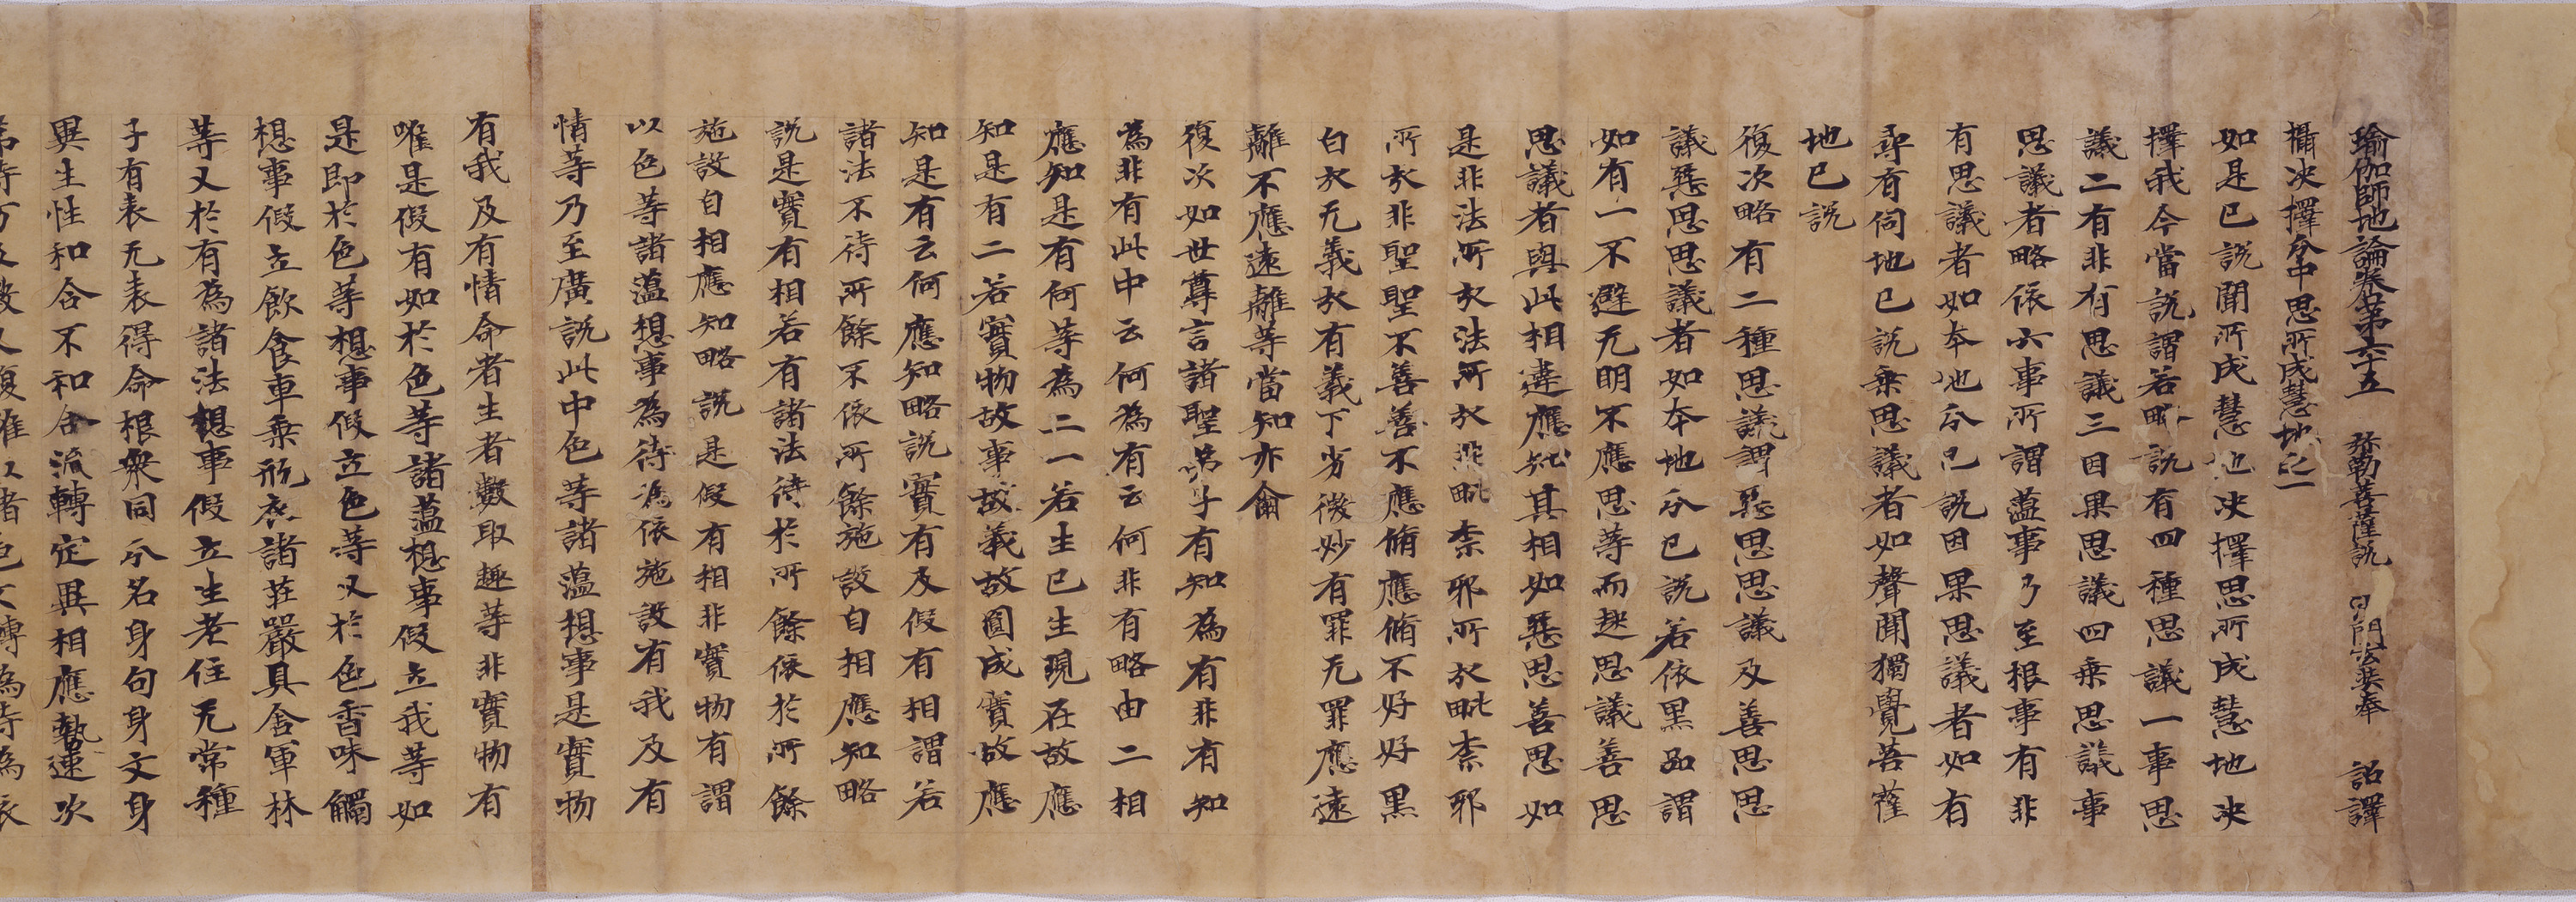 瑜伽師地論卷第六十五　弥勒菩薩說　沙門玄奘奉　詔譯
攝決擇分中思所成慧地之一
如是已說聞所成慧地決擇思所成慧地決
擇我今當說謂若略說有四種思議一事思
議二有非有思議三因果思議四乘思議事
思議者略依六事所謂蘊事乃至根事有非
有思議者如本地分已說因果思議者如有
尋有伺地已說乘思議者如聲聞獨覺菩薩
地已說
復次略有二種思議謂惡思思議及善思思
議惡思思議者如本地分已說若依黑品謂
如有一不避无明不應思等而越思議善思
思議者與此相違應知其相如惡思善思如
是非法所攝法所攝毗柰耶所攝毗柰耶
所攝非聖聖不善善不應脩應脩不好好黑
白攝无義攝有義下劣微妙有罪无罪應遠
離不應遠離等當知亦尒
復次如世尊言諸聖弟子有知為有非有知
為非有此中云何為有云何非有略由二相
應知是有何等為二一若生已生現在故應
知是有二若實物故事故義故圓成實故應
知是有云何應知略說實有及假有相謂若
諸法不待所餘不依所餘施設自相應知略
說是實有相若有諸法待於所餘依於所餘
施設自相應知略說是假有相非實物有謂
以色等諸蘊想事為待為依施設有我及有
情等乃至廣說此中色等諸蘊想事是實物
有我及有情命者生者數取趣等非實物有
唯是假有如於色等諸蘊想事假立我等如
是即於色等想事假立色等又於色香味觸
想事假立飲食車乘瓶衣諸莊嚴具舍軍林
等又於有為諸法想事假立生老住无常種
子有表无表得命根衆同分名身句身文身
異生性和合不和合流轉定異相應勢速次